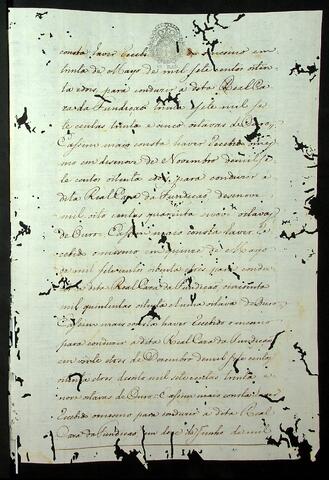 consta haver Recebido o mesmo em
trinta de Mayo de mil sete centos oiten
ta e dous, para conduzir a dita Real Ca
za da Fundiçaõ trinta e sete mil se
te centas trinta e cinco oitavas de Ouro,
E assim mais consta haver Recebido o mes
mo em desenove de Novembro de mil se
te centos oitenta e para conduzir á
dita Real Caza da Fundiçaõ desenove
mil oito centas quarenta e nove oitavas
de Ouro: E assim mais consta haver Re
cebido o mesmo em de Mayo
de mil sete centos oitenta e tres para condu
zir a dita Real Caza da Fundiçaõ cincoenta
mil quinhentas oitenta e huma oitava de Ouro
E assim mais consta haver Recebido o mesmo
para conduzir a dita Real Caza da Fundiçaõ
em vinte e tres de Dezembro de mil sete centos
oitenta e tres, mil sete centas trinta e
nove oitavas de Ouro: E assim mais consta haver
Recebido o mesmo para conduzir a dita Real
Caza da Fundiçaõ em de Junho de mil